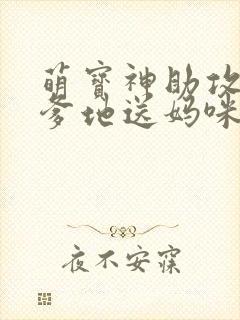 萌宝神助攻
爹地送妈咪
夜不安寐